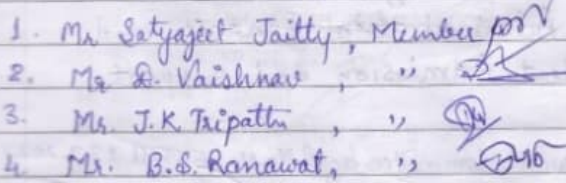 1. Mr Satyajeet Jaitly, Member
2. Mr D. Vaishnav, "
3. Mr. J.K Tripathi, "
4. Mr. B.S. Ranawat, "